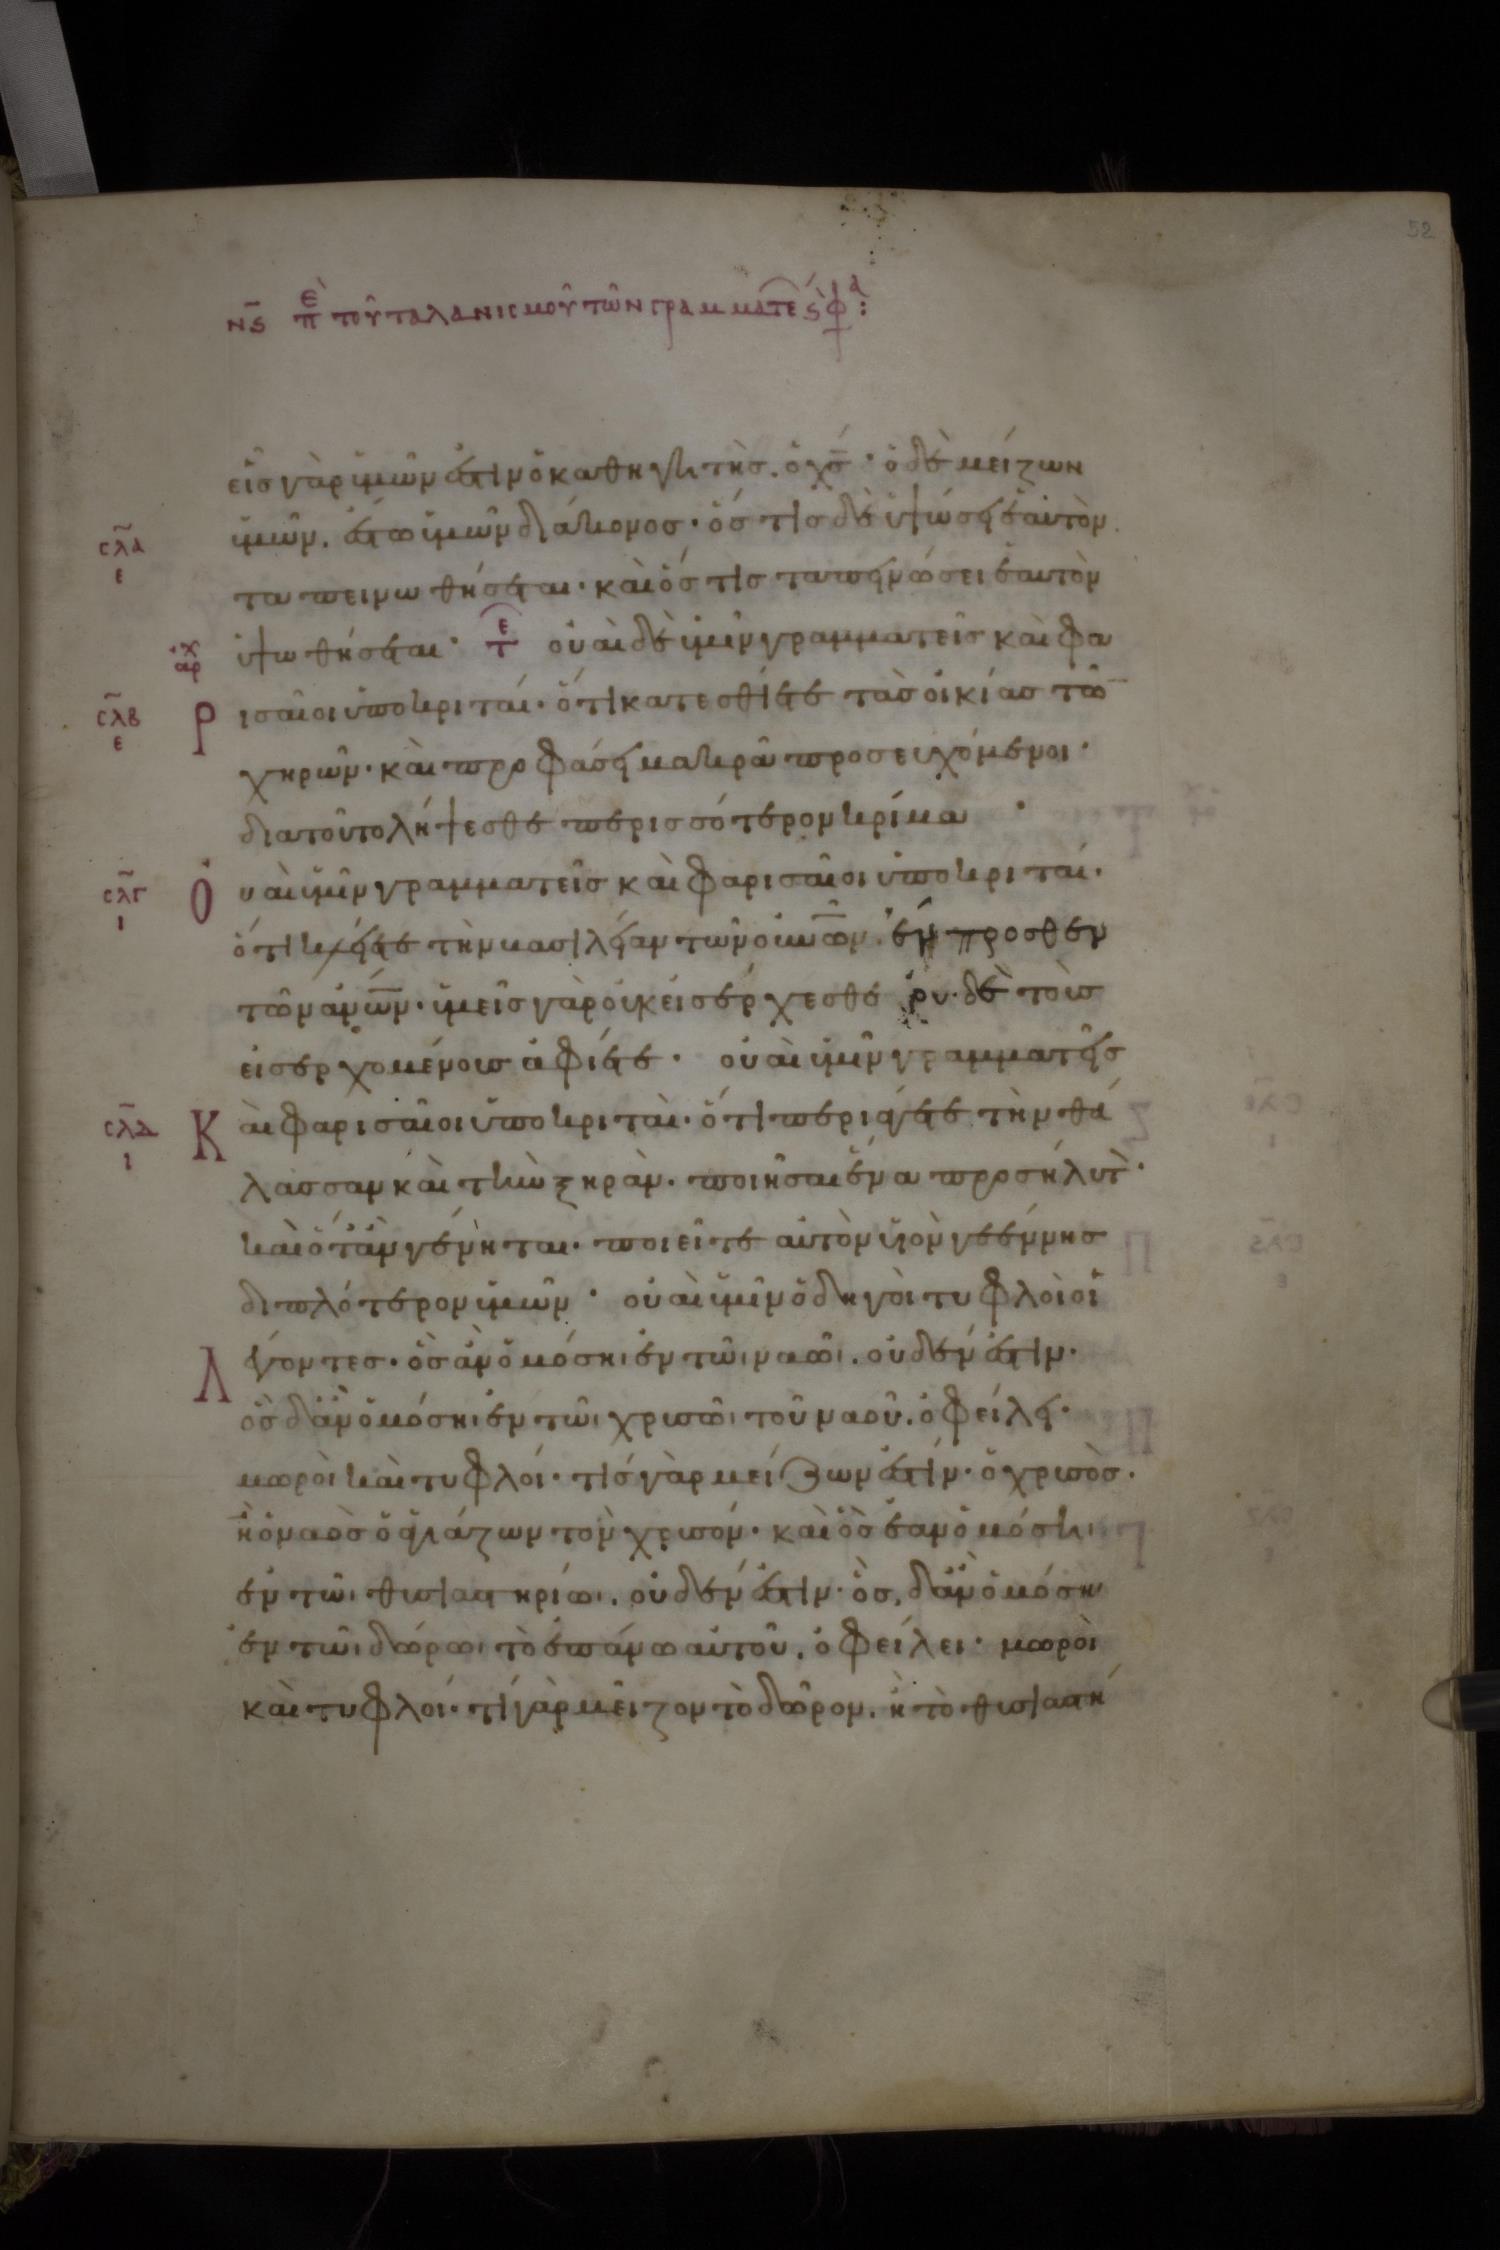 52
νϛ πε τοῦ ταλανισμοῦ τῶν γραμματε ϛ φα:
εἷσ γὰρ ὑμῶν ἐστιν ὁ καθηγητὴσ. ὁ χσ · ὁ δὲ μείζων
σλα ε ὑμῶν. ἔστω ὑμῶν διάκονοσ · ὅσ τισ δὲ ὑψώσει ἑαυτὸν
ταπεινωθήσεται · καὶ ὅσ τισ ταπεινώσει ἑαυτὸν
ἀρχ ὑψωθήσεται · τε οὐαὶ δὲ ὑμῖν γραμματεῖσ καὶ φα
σλβ ε ρισαῖοι ὑποκριταί · ὅτι κατεσθίετε τὰσ οἰκίασ τῶ
χηρῶν · καὶ προφάσει μακρᾶ προσευχόμενοι ·
διατοῦτο λήψεσθε περισσότερον κρίμα ·
σλγ ι Οὐαὶ ὑμῖν γραμματεῖσ καὶ φαρισαῖοι ὑποκριταί ·
ὅτι κλείετε τὴν βασιλείαν τῶν οὐνῶν. ἔμπροσθεν
τῶν ἀνων · ὑμεῖσ γὰρ οὐκ εἰσέρχεσθε οὐδὲ τοὺσ
εἰσερχομένουσ ἀφίετε · οὐαὶ ὑμῖν γραμματεῖσ
σλδ ι Καὶ φαρισαῖοι ὑποκριταὶ · ὅτι περιάγετε τὴν θά
λασσαν καὶ τὴν ξηρὰν · ποιῆσαι ἕνα προσήλυτ ·
καὶ ὅτὰν γένηται · ποιεῖτε αὐτὸν υἱὸν γεέννησ
διπλότερον ὑμῶν · οὐαὶ ὑμῖν ὁδηγοὶ τυφλοὶ οἱ
Λέγοντεσ · ὃσ ἂν ὀμόσηι ἐν τῶι ναῶι. οὐδέν ἐστιν ·
ὃσ δἂν ὀμόσηι ἐν τῶι χρυσῶι τοῦ ναοῦ. ὀφείλει ·
μωροὶ καὶ τυφλοί · τίσ γὰρ μείζων ἐστίν · ὁ χρυσὸσ ·
ἢ ὁ ναὸσ ὁ ἁγιάζων τὸν χρυσόν · καὶ ὃσ ἐαν ὀμόσηι
ἐν τῶι θυσιαστηρίωι. οὐδέν ἐστιν · ὃσ δἂν ὀμόση
ἐν τῶι δώρωι τὸ ἐπάνω αὐτοῦ. ὀφείλει · μωροὶ
καὶ τυφλοί · τί γὰρ μεῖζον τὸ δῶρον. ἢ τὸ θυσιαστή